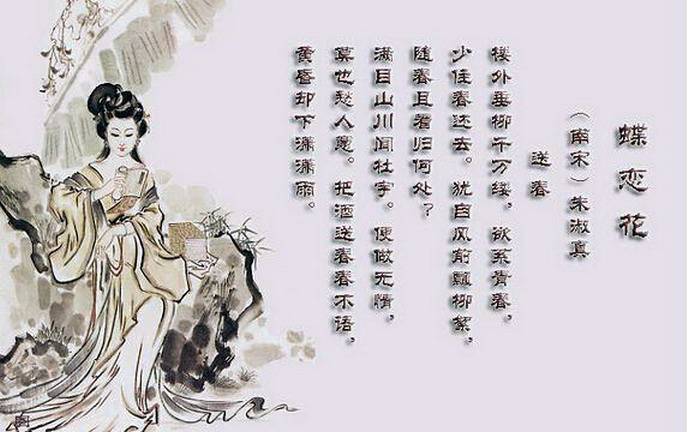 蝶恋花
（南宋）朱淑真
送春
楼外垂柳千万缕，欲系青春，
少住春还去。犹自风前飘柳絮，
随春且看归何处？
满目山川闻杜宇。便做无情，
莫也愁人意。把酒送春春不语，
黄昏却下潇潇雨。